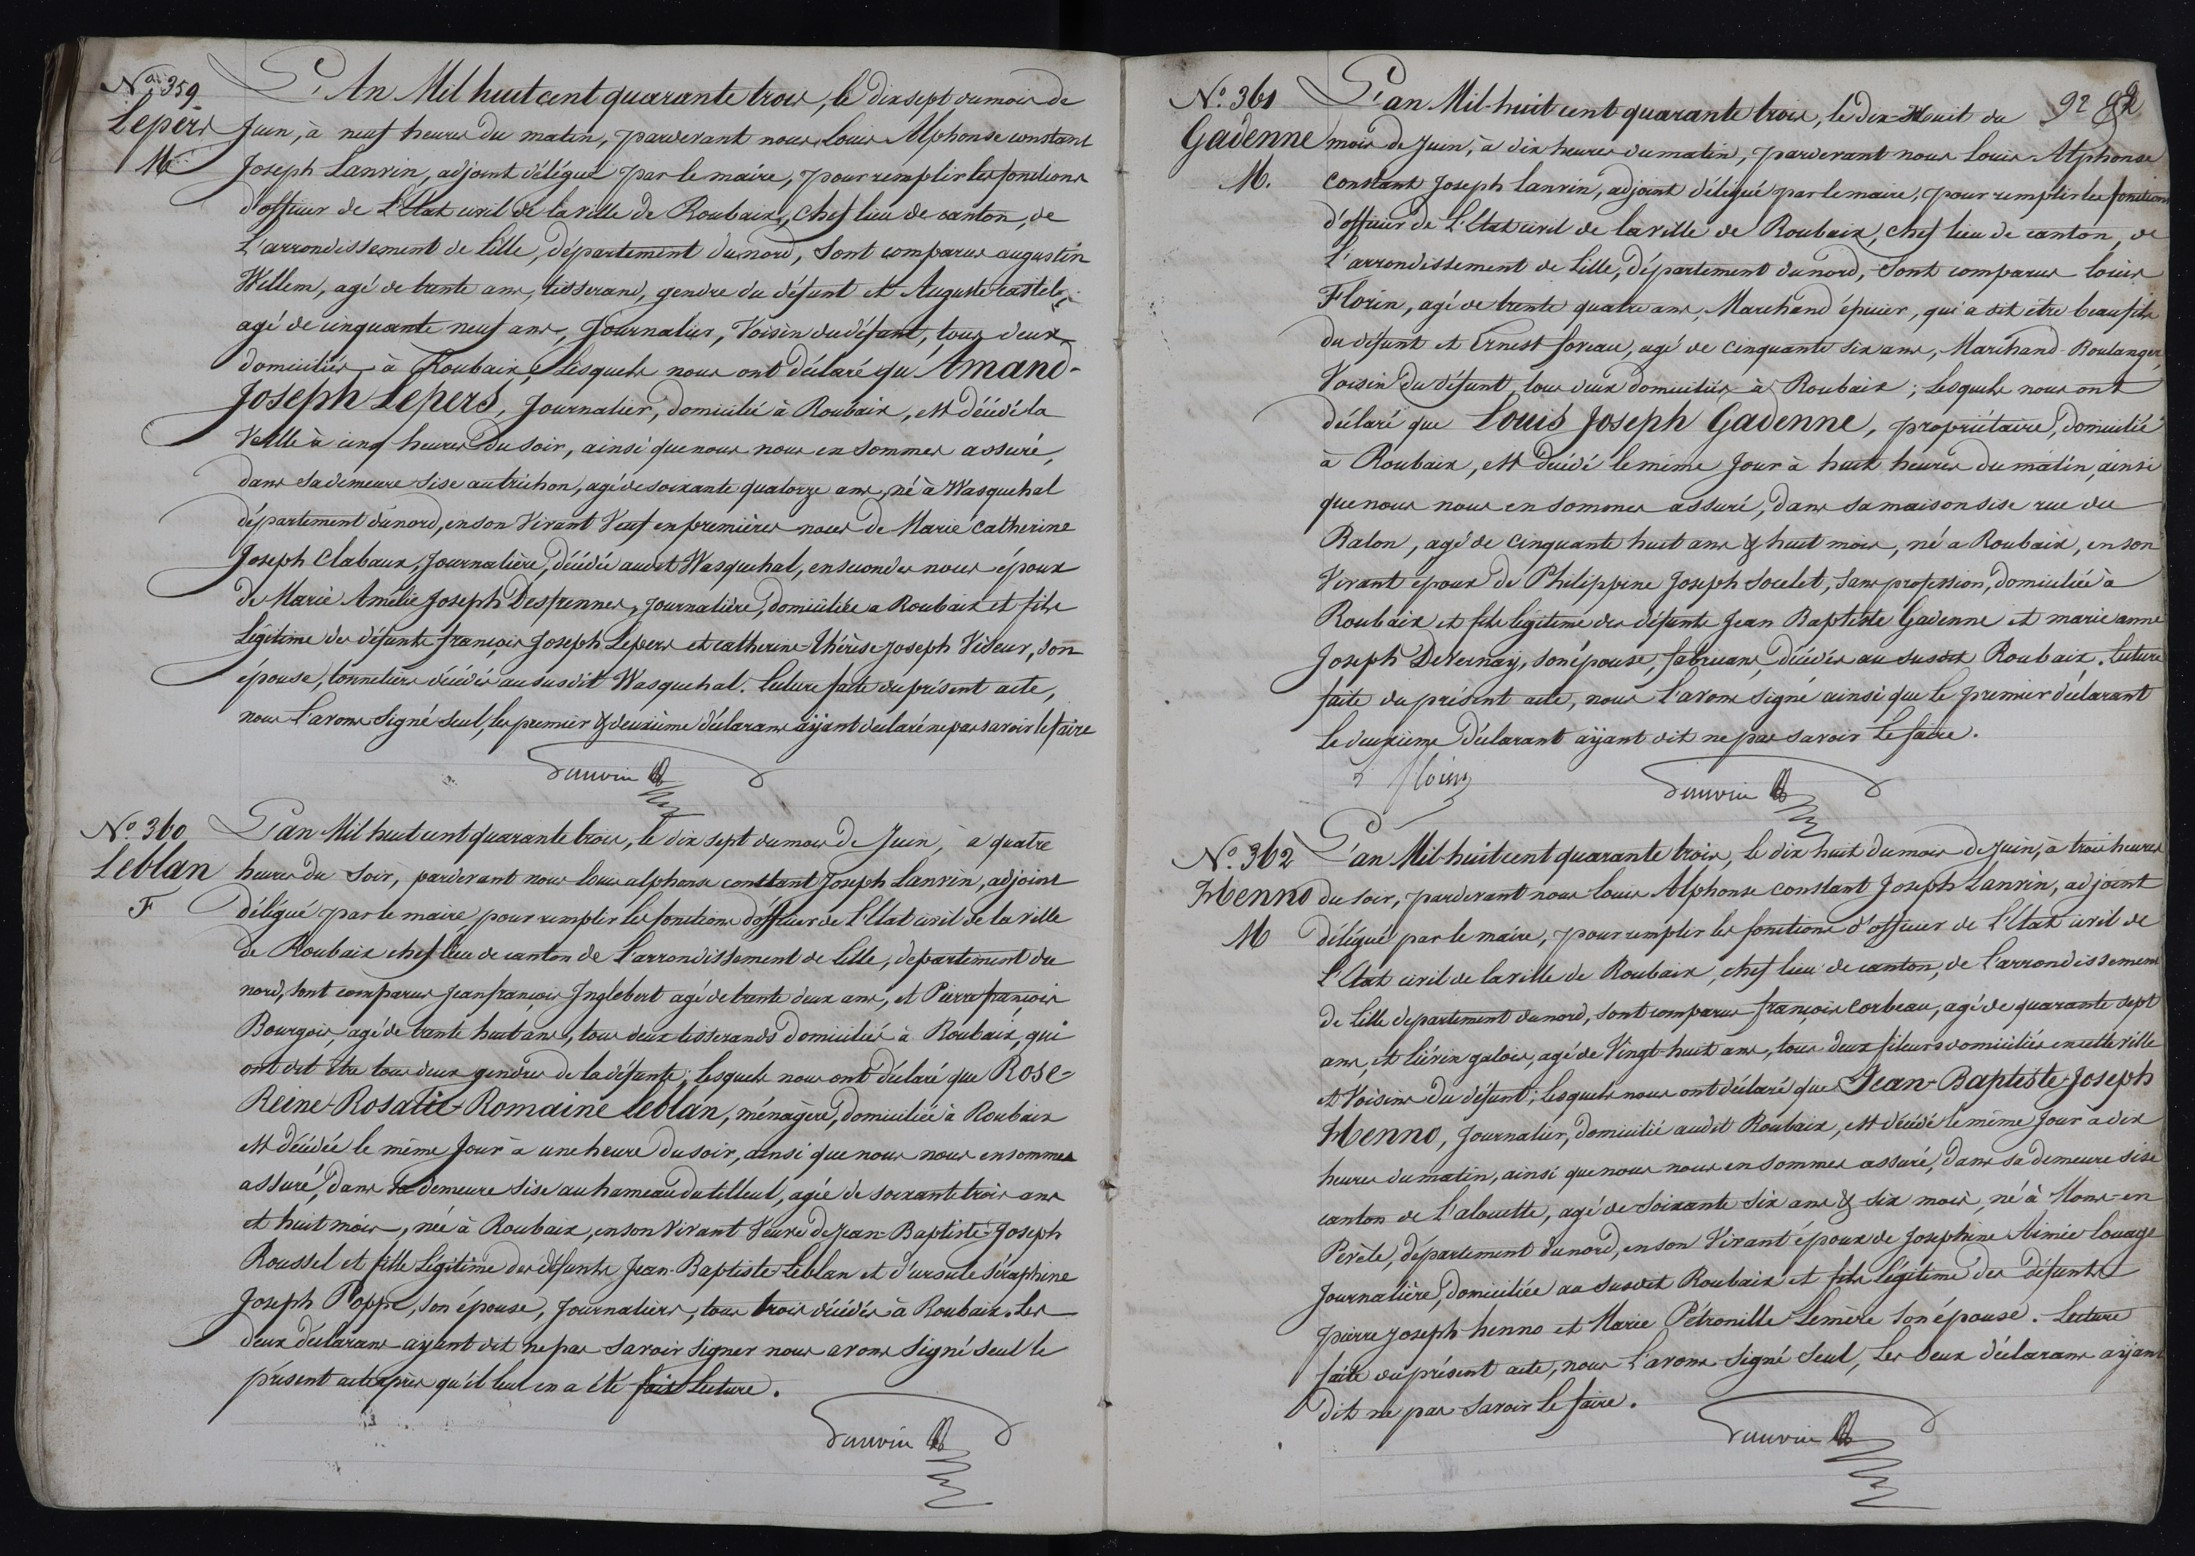 N.º 359
Lepers
M
L'An Mil huit cent quarante trois, le dix sept du mois de
Juin, à neuf heures du matin, pardevant nous Louis Alphonse constant
Joseph Lanvin, adjoint délégué par le maire, pour remplir les fonctions
d'officier de L'Etat civil de la ville de Roubaix, chef lieu de canton, de
L'arrondissement de Lille, département du nord, Sont comparus augustin
Willem, agé de trente ans, tisserand, gendre du défunt et Auguste castel
agé de cinquante neuf ans, Journalier, Voisin du défunt, tous deux
domiciliés à Roubaix, Lesquels nous ont déclaré qu'Amand-
Joseph Lepers, Journalier, domicilié à Roubaix, est décédé la
Veille à cinq heures du soir, ainsi que nous nous en sommes assuré,
dans sa demeure sise au trichon, agé de soixante quatorze ans, né à Wasquehal
département du nord, en son Vivant Veuf en premières noces de Marie catherine
Joseph Clabaux, Journalière, décédée audit Wasquehal, en secondes noces époux
de Marie Amélie Joseph Despennes, Journalière, domiciliée a Roubaix et fils
Légitime des défunts françois Joseph Lepers et catherine-thérèse Joseph Viseur, son
épouse, tonneliers décédés au susdit Wasquehal. Lecture faite du présent acte,
nous l'avons Signé Seul, les premier & deuxième déclarans ayant déclaré ne pas savoir le faire
Lanvin
N.º 360
Leblan
F
L'an Mil huit cent quarante trois, le dix sept du mois de Juin, à quatre
heures du Soir, pardevant nous louis alphonse constant Joseph Lanvin, adjoint
délégué par le maire pour remplir les fonctions d'officier de L'Etat civil de la ville
de Roubaix chef lieu de canton de L'arrondissement de Lille, département du
nord, sont comparus Jean françois Inglebert agé de trente deux ans, et Pierre françois
Bourgois, agé de trente huit ans, tous deux tisserands domiciliés à Roubaix, qui
ont dit être tous deux gendres de la défunte; Lesquels nous ont déclaré que Rose-
Reine-Rosalie-Romaine Leblan, ménagère, domiciliée à Roubaix
est décédée le même Jour à une heure du soir, ainsi que nous nous en sommes
assuré, dans sa demeure sise au hameau du tilleul, agée de soixante trois ans
et huit mois, née à Roubaix, en son Vivant Veuve de Jean-Baptiste-Joseph
Roussel et fille Légitime des défunts Jean-Baptiste Leblan et d'ursule Séraphine
Joseph Poppe, son épouse, Journaliers, tous trois décédés à Roubaix. Les
deux déclarans ayant dit ne pas savoir signer nous avons signé seul le
présent acte après qu'il leur en a été fait Lecture.
Lanvin
92 92
N.º 361
Gadenne
M.
L'an Mil-huit cent quarante trois, le dix-Huit du
mois de Juin, à dix heures du matin, pardevant nous Louis Alphonse
constant Joseph Lanvin, adjoint délégué par le maire, pour remplir les fonctions
d'officier de L'Etat civil de la ville de Roubaix, chef lieu de canton, de
L'arrondissement de Lille, département du nord, sont comparus Louis
Florin, agé de trente quatre ans, Marchand épicier, qui a dit être beau fils
du défunt et Ernest foreau, agé de cinquante six ans, Marchand-Boulanger,
Voisin du défunt, tous deux domiciliés à Roubaix; Lesquels nous ont
déclaré que Louis Joseph Gadenne, propriétaire, domicilié
à Roubaix, est décédé le même Jour à huit heures du matin, ainsi
que nous nous en sommes assuré, dans sa maison sise rue du
Balon, agé de cinquante huit ans & huit mois, né a Roubaix, en son
Vivant époux de Philippine Joseph Socelet, Sans profession, domiciliée à
Roubaix et fils légitime des défunts Jean Baptiste Gadenne et marie anne
Joseph Devernay, son épouse, fabricans, décédés au susdit Roubaix. Lecture
faite du présent acte, nous l'avons signé ainsi que Le premier déclarant
Le deuxième déclarant ayant dit ne pas savoir Le faire.
L florin
Lanvin
N.º 362
Henno
M
L'an Mil-huit cent quarante trois, le dix huit du mois de Juin, à trois heures
du soir, pardevant nous Louis Alphonse constant Joseph Lanvin, adjoint
délégué par le maire, pour remplir les fonctions d'officier de L'Etat civil de
L'Etat civil de la ville de Roubaix, chef lieu de canton, de L'arrondissement
de Lille département du nord, sont comparus françois Corbeau, agé de quarante sept
ans, et Liévin galois, agé de Vingt-huit ans, tous deux fileurs domiciliés en cette ville
et Voisins du défunt; Lesquels nous ont déclaré que Jean-Baptiste-Joseph
Henno, Journalier, domicilié audit Roubaix, est décédé le même Jour a dix
heures du matin, ainsi que nous nous en sommes assuré, dans sa demeure sise
canton de L'alouette, agé de soixante six ans & six mois, né à Mons-en
Pévèle, département du nord, en son Vivant époux de Josephine Aimée Louage
Journalière, domiciliée au susdit Roubaix et fils Légitime des défunts
pierre joseph henno et Marie Pétronille Lemère son épouse. Lecture
faite du présent acte, nous l'avons signé Seul, Les deux déclarans ayant
dit ne pas savoir Le faire.
Lanvin